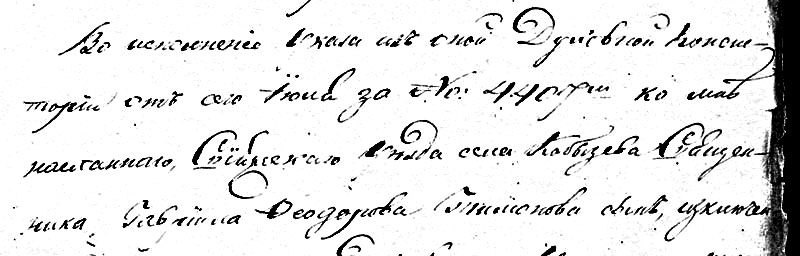 Во исполненіе Указа изъ оной Духовной Консис-
торіи отъ сего Іюля за №: 4407мъ ко мнѣ
посланнаго, уѣзда села Кобызева Священ-
ника Гавріила Ѳеодорова Тимонова сынъ, изключен